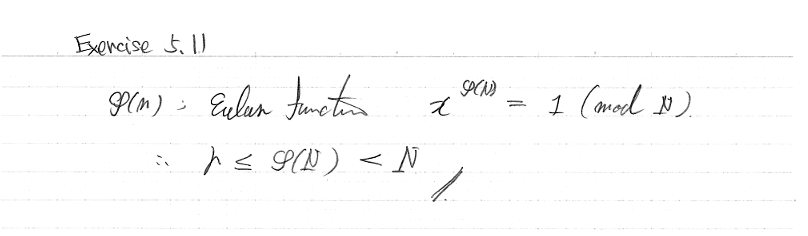 Exercise 5.11
φ(n) : Euler function x^φ(N) = 1 (mod N).
∴ r ≤ φ(N) < N